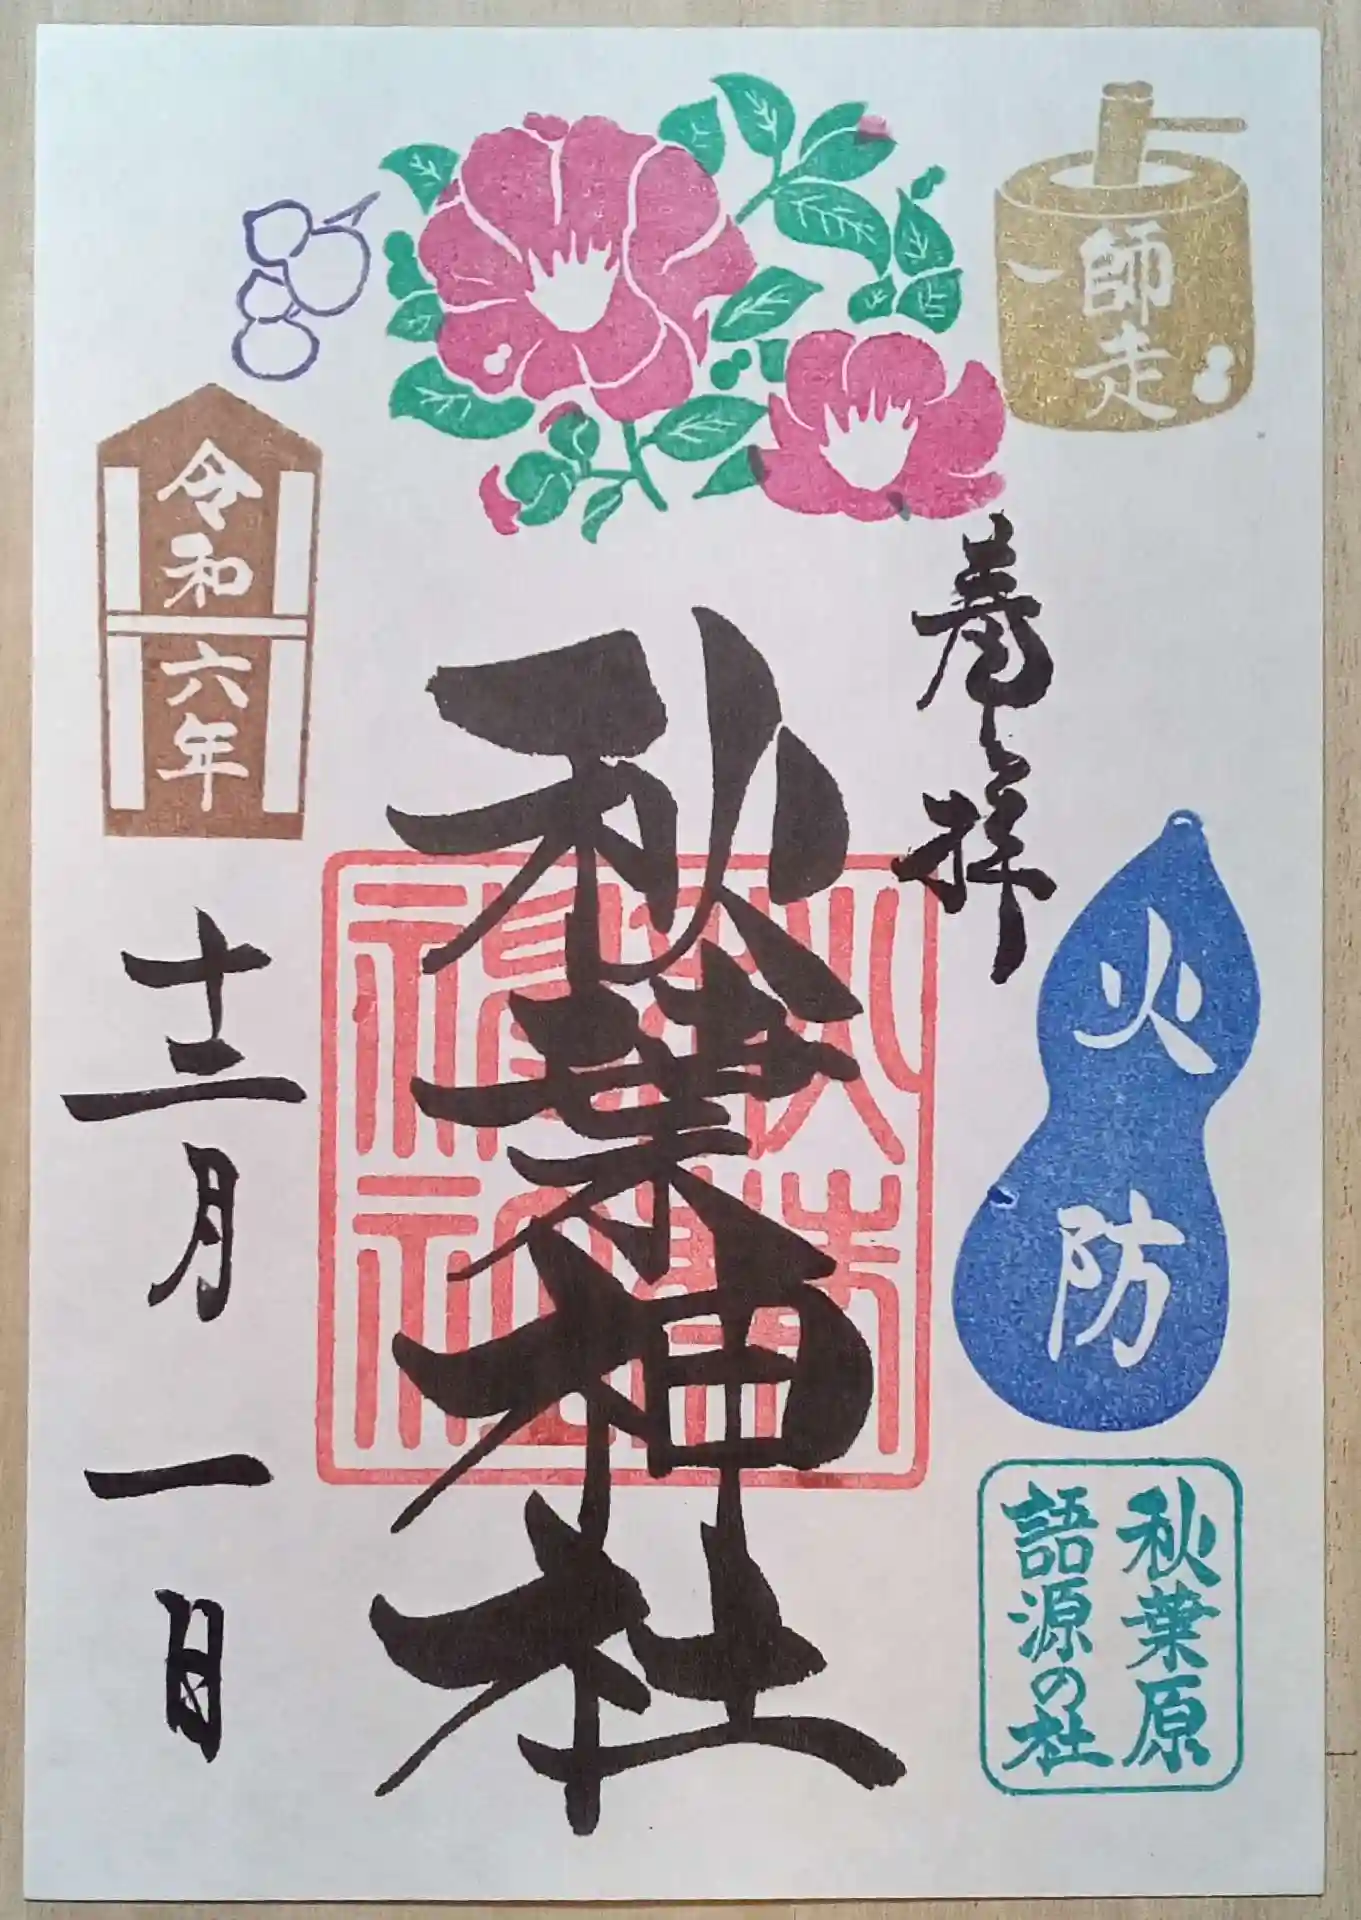 師走
奉拝
火防
秋葉原
語源の社
秋葉神社
令和六年
十二月一日